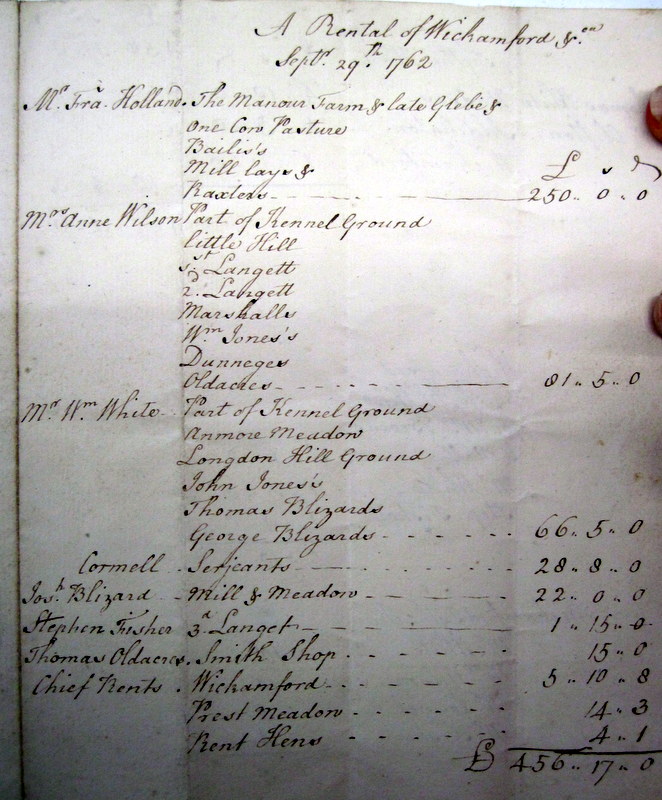 A Rental of Wichamford &c.
Septr. 29th. 1762
Mr. Fra. Holland. The Manour Farm & late Glebe &
One Cow Pasture
Bailis's
Mill lays & £ s d
Raxters 250 .. 0 .. 0
Mrs Anne Wilson Part of Kennel Ground
little Hill
1st. Langett
2d. Langett
Marshalls
Wm Jones's
Dunneges
Oldacres 81 .. 5 .. 0
Mr. Wm. White Part of Kennel Ground
Anmore Meadow
Longdon Hill Ground
John Jones's
Thomas Blizards
George Blizards 66 .. 5 .. 0
Cormell Serjeants 28 .. 8 .. 0
Josh. Blizard Mill & Meadow 22 .. 0 .. 0
Stephen Fisher 3d Langet 1 .. 15 .. 0
Thomas Oldacres. Smith Shop 15 .. 0
Chief Rents . Wichamford 5 .. 10 .. 8
Prest Meadow 14 .. 3
Rent Hens 4 .. 1
£ 456 .. 17 .. 0